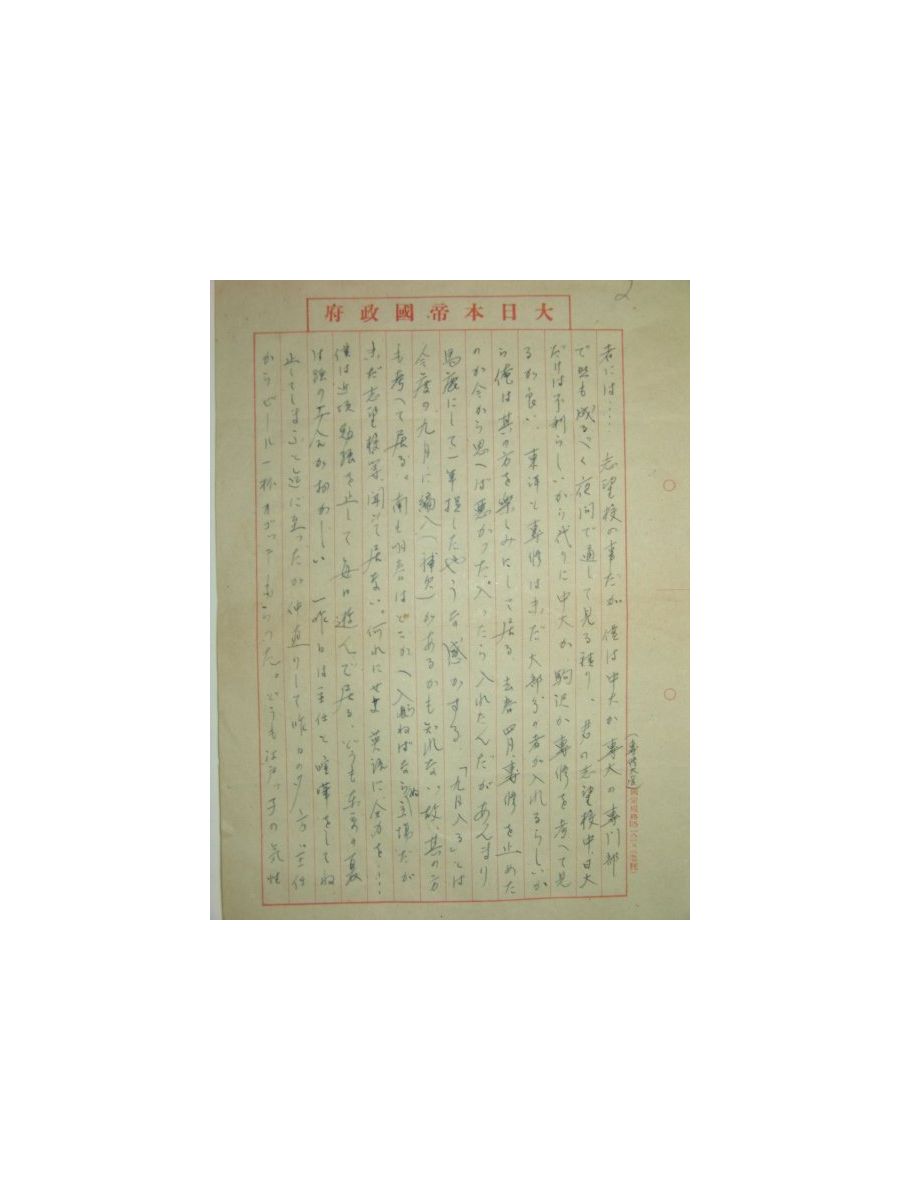 2
府政國帝本日大
者には… 志望校の事だが 僕は中大か専大の専門部
(専修大学)
で 成るべく夜間で通して見る積り、君の志望校中、日大
だけは不利らしいから代りに中大か 駒沢か専修を考へて見
るが良い、東洋と専修は未だ大部分の者が入れるらしいか
ら俺は其の方を楽しみにして居る 去春四月専修を止めた
のが今から思へば悪かった、入ったら入れたんだがあんまり
馬鹿にして一年損したやうな感がする、「九月入る」とは
今度の九月に編入(補欠)があるかも知れない故、其の方
も考へて居る。 はどこかへ入らねばならぬ立場だが
未だ志望校等聞いて居ない。何れにせよ 英語に全力を…
僕は近頃勉強を止して毎日遊んで居る、どうも東京の夏
は頭の工合がおかしい 一昨日は主任と喧嘩をしてね
止してしまふと迄に至ったが仲直りして昨日の夕方主任
からビール一杯オゴッてもらった。どうも江戸っ子の気性